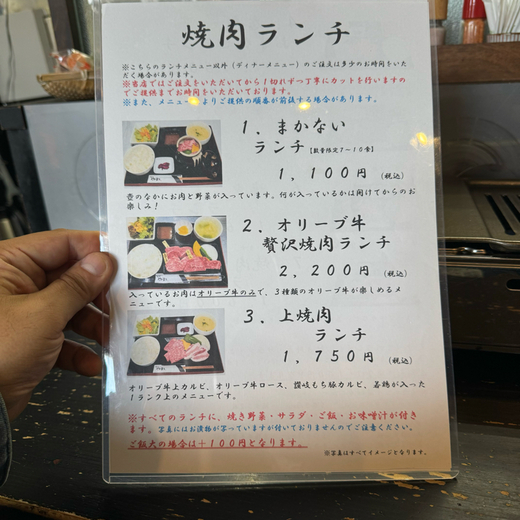 焼肉ランチ
※こちらのランチメニュー以外(ディナーメニュー)のご注文は多少のお時間をいた
だく場合があります。
※当店ではご注文をいただいてから1切れずつ丁寧にカットを行いますの
でご提供までお時間をいただいております。
※また、メニューによりご提供の順番が前後する場合があります。
1.まかない
ランチ【数量限定7~10食】
1,100円 (税込)
壺のなかにお肉と野菜が入っています。何が入っているかは開けてからのお
楽しみ!
2.オリーブ牛
贅沢焼肉ランチ
2,200円 (税込)
入っているお肉はオリーブ牛のみで、3種類のオリーブ牛が楽しめるメ
ニューです。
3.上焼肉
ランチ
1,750円 (税込)
オリーブ牛上カルビ、オリーブ牛ロース、讃岐もち豚カルビ、若鶏が入った
1ランク上のメニューです。
※すべてのランチに、焼き野菜・サラダ・ご飯・お味噌汁が付き
ます。写真にはお漬物が写っていますが付いておりませんのでご注意ください。
ご飯大の場合は+100円となります。
※写真はすべてイメージとなります。